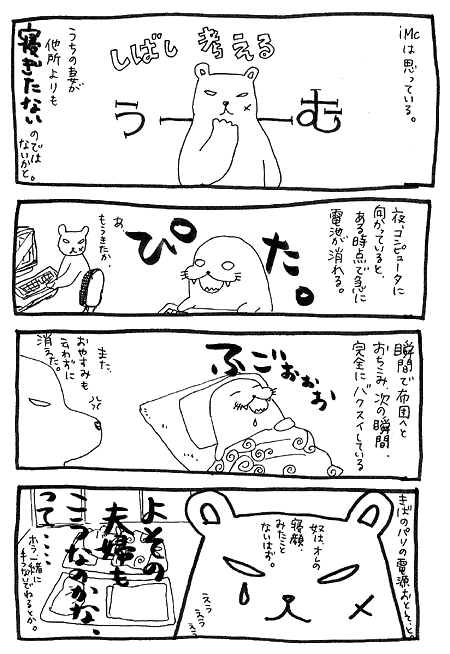 iMcは思っている。
しばし考える
う――む
うちの妻が
他所よりも
寝ぎたない
のでは
ないかと。
夜コンピュータに
向かっていると、
ある時点で急に
電池が消れる。
ぴた。
あ
もうきたか、
瞬間で布団へと
おちこみ、次の瞬間、
完全にバクスイしている
ふごおぉぉ
また、
おやすみも
云わずに
消えた。
きばのパソの電源おとして、と。
奴は、オレの
寝顔、
みたこと
ないはず。
えぅ
えぅ
えぅ
よその
夫婦も
こうなのかな、
って……
ホラ、一緒に
手つないでねるとか。